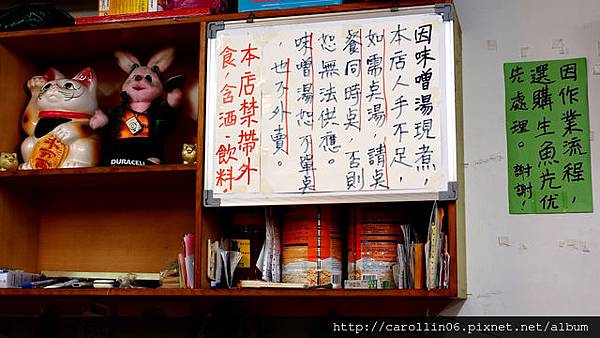 因味噌湯現煮，
本店人手不足，
如需桌湯，請桌
餐同時桌，否則
恕無法供應。
味噌湯恕不單桌
，也不外賣。
本店禁帶外
食，含酒、飲料。
因作業流程，
選購生魚片优
先處理。謝謝！
DURACELL
http://carollin06.pixnet.net/album